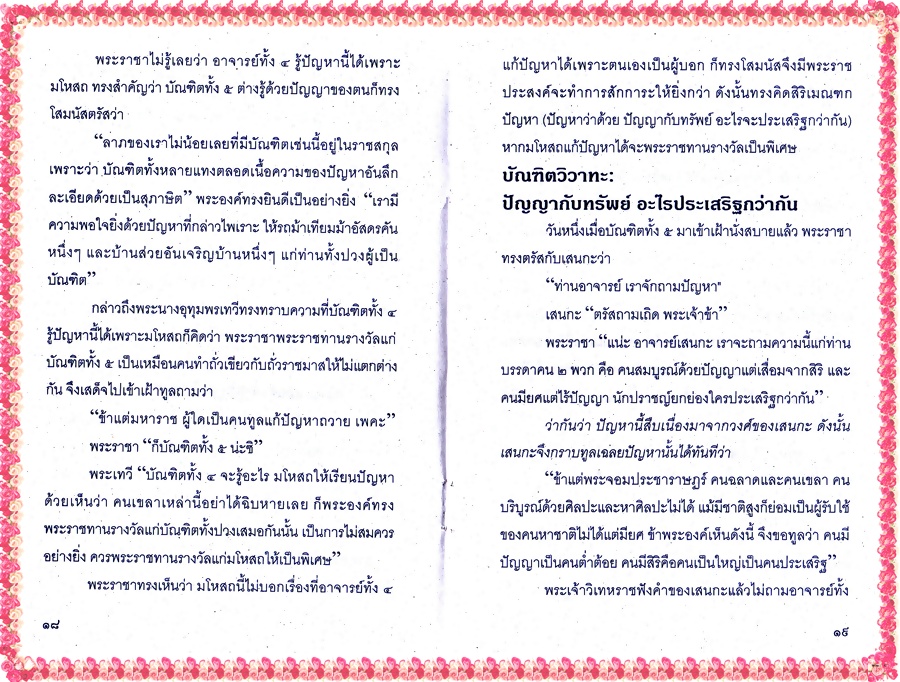 พระราชาไม่รู้เลยว่า อาจารย์ทั้ง ๔ รู้ปัญหานี้ได้เพราะ
มโหสถ ทรงสำคัญว่า บัณฑิตทั้ง ๕ ต่างรู้ด้วยปัญญาของตนก็ทรง
โสมนัสตรัสว่า
“ลาภของเราไม่น้อยเลยที่มีบัณฑิตเช่นนี้อยู่ในราชสกุล
เพราะว่า บัณฑิตทั้งหลายแทงตลอดเนื้อความของปัญหาอันลึก
ละเอียดด้วยเป็นสุภาษิต” พระองค์ทรงยินดีเป็นอย่างยิ่ง “เรามี
ความพอใจยิ่งด้วยปัญหาที่กล่าวไพเราะ ให้รถม้าเทียมม้าอัสดรคัน
หนึ่งๆ และบ้านส่วยอันเจริญบ้านหนึ่งๆ แก่ท่านทั้งปวงผู้เป็น
บัณฑิต”
กล่าวถึงพระนางอุทุมพรเทวีทรงทราบความที่บัณฑิตทั้ง ๔
รู้ปัญหานี้ได้เพราะมโหสถก็คิดว่า พระราชาพระราชทานรางวัลแก่
บัณฑิตทั้ง ๕ เป็นเหมือนคนทำถั่วเขียวกับถั่วราชมาสให้ไม่แตกต่าง
กัน จึงเสด็จไปเข้าเฝ้าทูลถามว่า
“ข้าแต่มหาราช ผู้ใดเป็นคนทูลแก้ปัญหาถวาย เพคะ”
พระราชา “ก็บัณฑิตทั้ง ๕ น่ะซิ”
พระเทวี “บัณฑิตทั้ง ๔ จะรู้อะไร มโหสถให้เรียนปัญหา
ด้วยเห็นว่า คนเขลาเหล่านี้อย่าได้ฉิบหายเลย ก็พระองค์ทรง
พระราชทานรางวัลแก่บัณฑิตทั้งปวงเสมอกันนั้น เป็นการไม่สมควร
อย่างยิ่ง ควรพระราชทานรางวัลแก่มโหสถให้เป็นพิเศษ”
พระราชาทรงเห็นว่า มโหสถนี้ไม่บอกเรื่องที่อาจารย์ทั้ง ๔
๑๘
แก้ปัญหาได้เพราะตนเองเป็นผู้บอก ก็ทรงโสมนัสจึงมีพระราช
ประสงค์จะทำการสักการะให้ยิ่งกว่า ดังนั้นทรงคิดสิริเมณฑก
ปัญหา (ปัญหาว่าด้วย ปัญญากับทรัพย์ อะไรจะประเสริฐกว่ากัน)
หากมโหสถแก้ปัญหาได้จะพระราชทานรางวัลเป็นพิเศษ
บัณฑิตวิวาทะ:
ปัญญากับทรัพย์ อะไรประเสริฐกว่ากัน
วันหนึ่งเมื่อบัณฑิตทั้ง ๕ มาเข้าเฝ้านั่งสบายแล้ว พระราชา
ทรงตรัสกับเสนกะว่า
“ท่านอาจารย์ เราจักถามปัญหา"
เสนกะ “ตรัสถามเถิด พระเจ้าข้า”
พระราชา “แน่ะ อาจารย์เสนกะ เราจะถามความนี้แก่ท่าน
บรรดาคน ๒ พวก คือ คนสมบูรณ์ด้วยปัญญาแต่เสื่อมจากสิริ และ
คนมียศแต่ไร้ปัญญา นักปราชญ์ยกย่องใครประเสริฐกว่ากัน”
ว่ากันว่า ปัญหานี้สืบเนื่องมาจากวงศ์ของเสนกะ ดังนั้น
เสนกะจึงกราบทูลเฉลยปัญหานั้นได้ทันทีว่า
“ข้าแต่พระจอมประชาราษฎร์ คนฉลาดและคนเขลา คน
บริบูรณ์ด้วยศิลปะและหาศิลปะไม่ได้ แม้มีชาติสูงก็ย่อมเป็นผู้รับใช้
ของคนหาชาติไม่ได้แต่มียศ ข้าพระองค์เห็นดังนี้ จึงขอทูลว่า คนมี
ปัญญาเป็นคนต่ำต้อย คนมีสิริคือคนเป็นใหญ่เป็นคนประเสริฐ”
พระเจ้าวิเทหราชฟังคำของเสนกะแล้วไม่ถามอาจารย์ทั้ง
๑๙